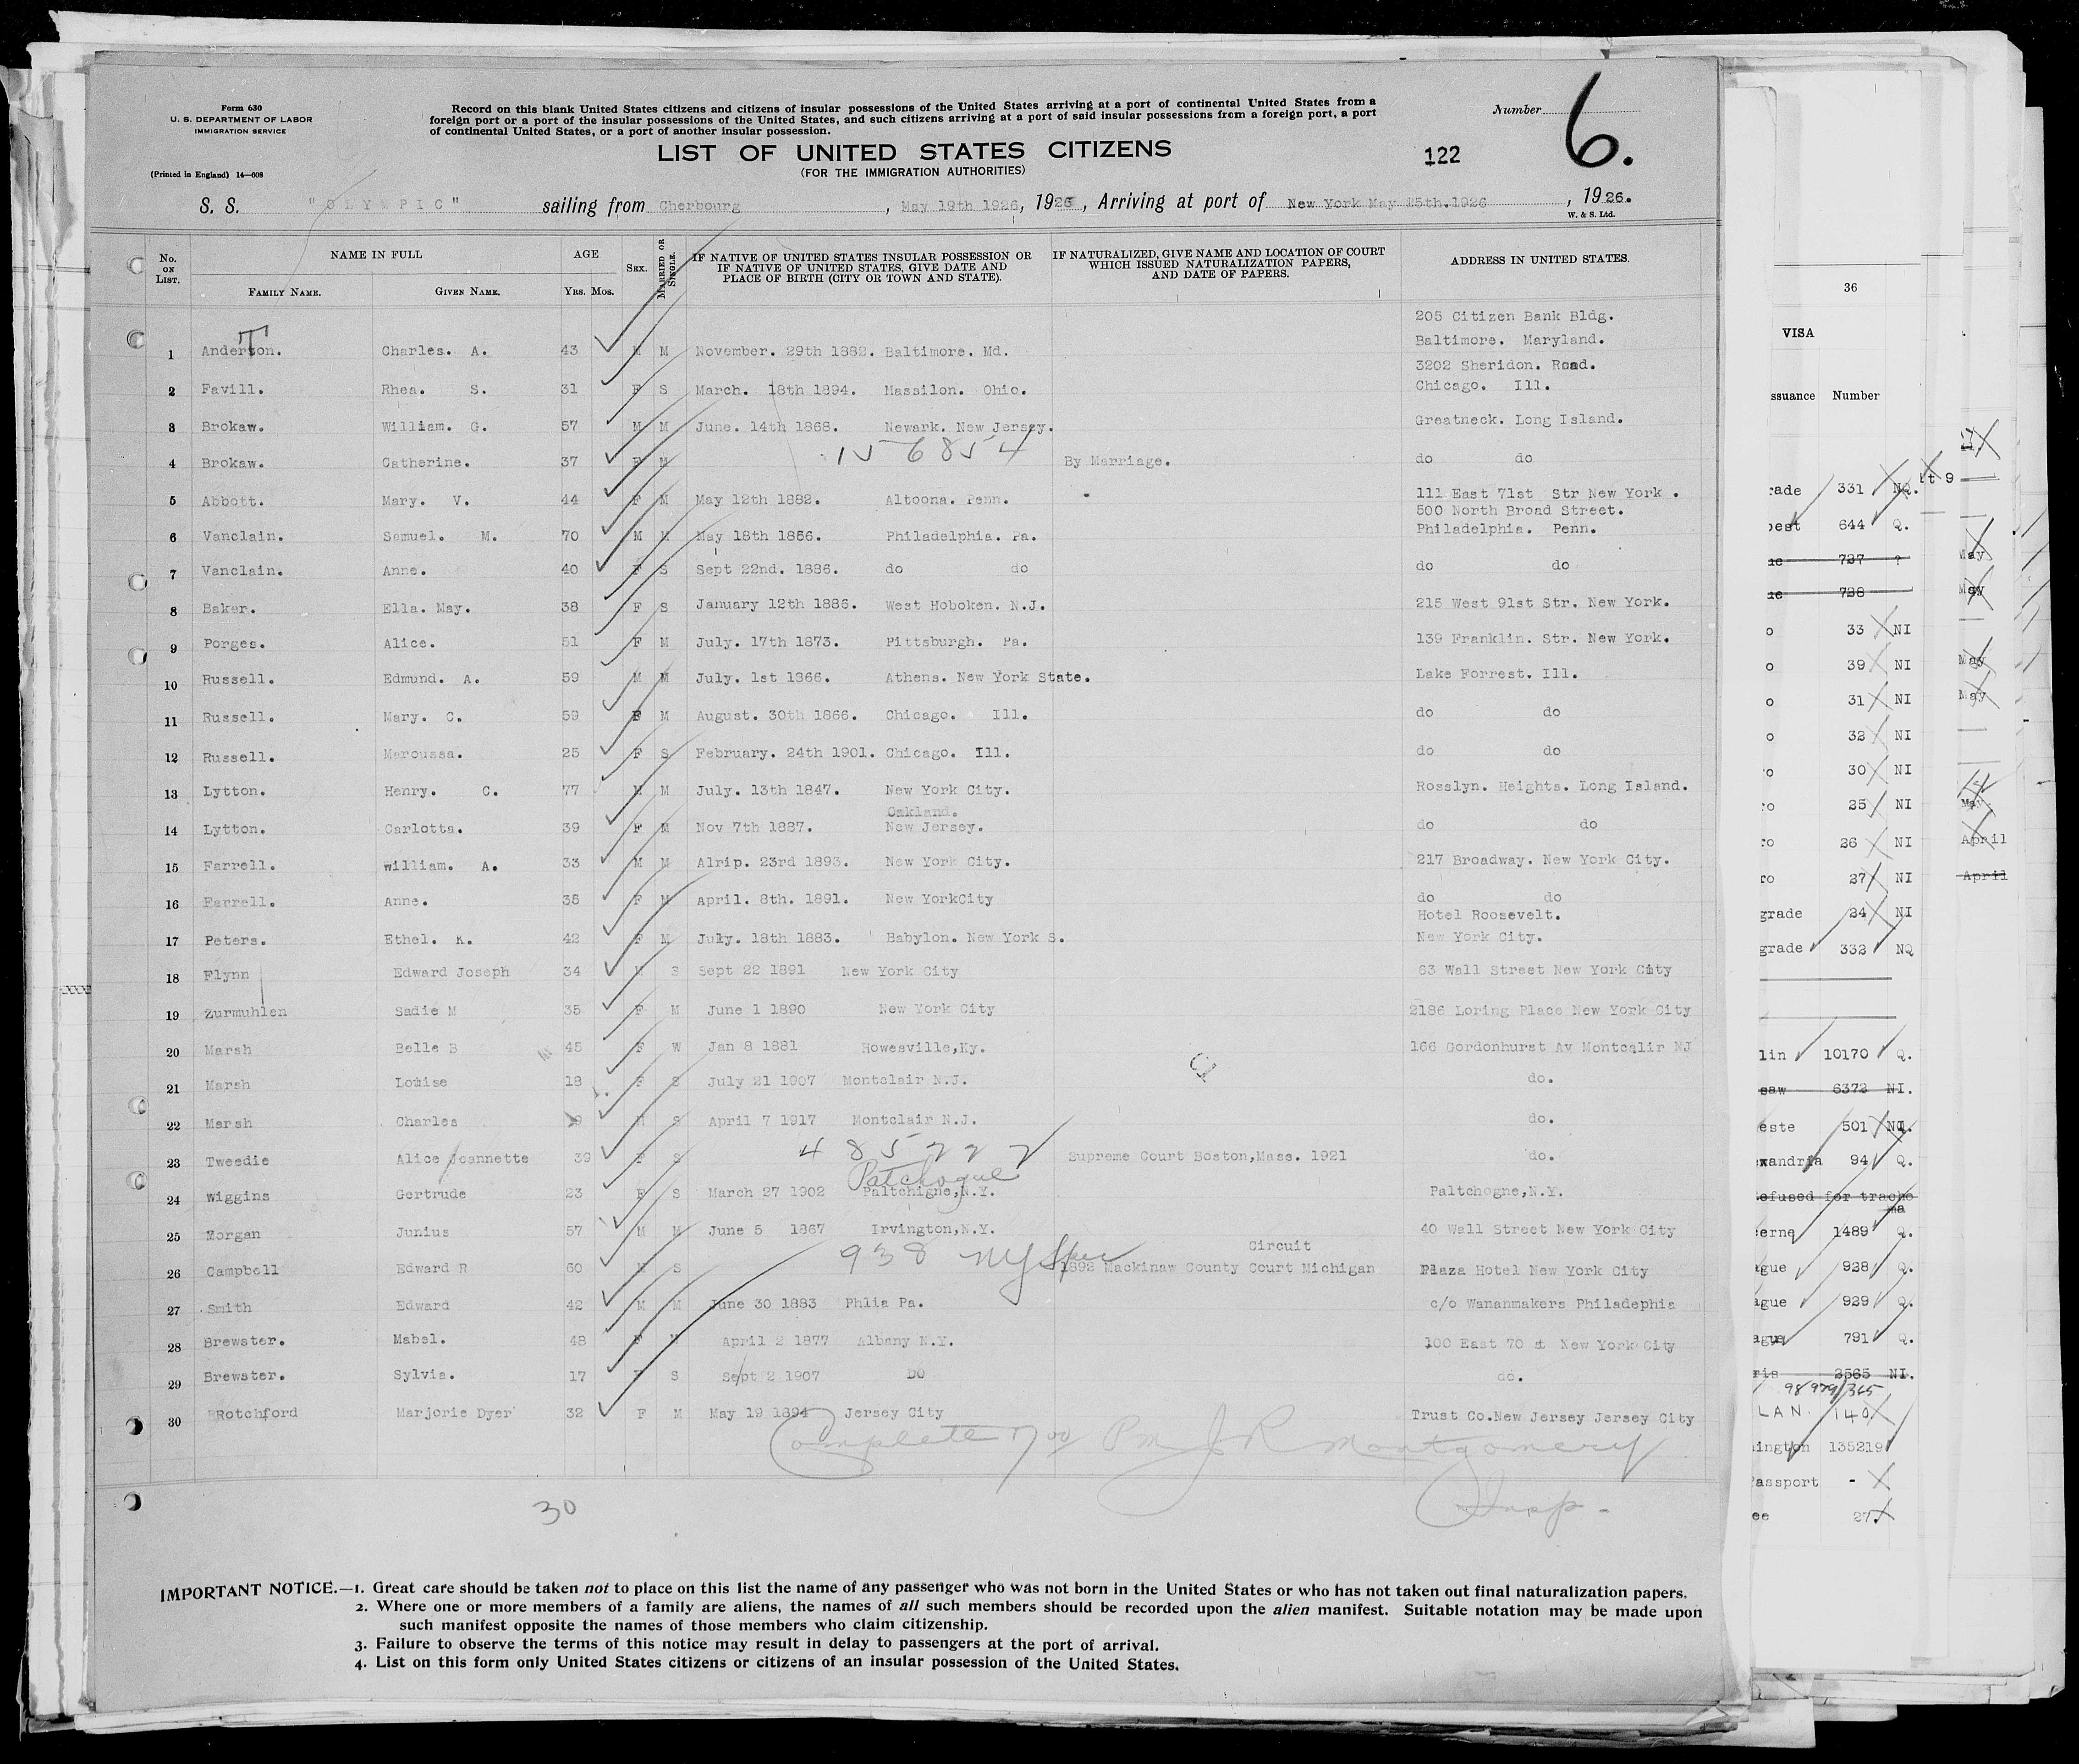 Form 630
U. S. DEPARTMENT OF LABOR
IMMIGRATION SERVICE
(Printed in England) 14—608
Record on this blank United States citizens and citizens of insular possessions of the United States arriving at a port of continental United States from a
foreign port or a port of the insular possessions of the United States, and such citizens arriving at a port of said insular possessions from a foreign port, a port
of continental United States, or a port of another insular possession.
Number 6.
LIST OF UNITED STATES CITIZENS
122
(FOR THE IMMIGRATION AUTHORITIES)
S. S. "OLYMPIC" sailing from Cherbourg, May 19th 1926, 1926, Arriving at port of New York May 25th.1926, 1926.
W. & S. Ltd.
No. ON LIST. NAME IN FULL AGE SEX. MARRIED OR SINGLE. IF NATIVE OF UNITED STATES INSULAR POSSESSION OR IF NATIVE OF UNITED STATES, GIVE DATE AND PLACE OF BIRTH (CITY OR TOWN AND STATE). IF NATURALIZED, GIVE NAME AND LOCATION OF COURT WHICH ISSUED NATURALIZATION PAPERS, AND DATE OF PAPERS. ADDRESS IN UNITED STATES.
FAMILY NAME. GIVEN NAME. YRS. MOS.
205 Citizen Bank Bldg.
T
Baltimore. Maryland.
1 Anderton. Charles. A. 43 M M November. 29th 1882. Baltimore. Md.
3202 Sheridon. Road.
2 Favill. Rhea. S. 31 F S March. 18th 1894. Massilon. Ohio. Chicago. Ill.
3 Brokaw. William. G. 57 M M June. 14th 1868. Newark. New Jersey. Greatneck. Long Island.
156854
4 Brokaw. Catherine. 37 F M By Marriage. do do
5 Abbott. Mary. V. 44 F M May 12th 1882. Altoona. Penn. 111 East 71st Str New York .
500 North Broad Street.
6 Vanclain. Samuel. M. 70 M M May 18th 1856. Philadelphia. Pa. Philadelphia. Penn.
7 Vanclain. Anne. 40 F S Sept 22nd. 1886. do do do do
8 Baker. Ella. May. 38 F S January 12th 1886. West Hoboken. N.J. 215 West 91st Str. New York.
9 Porges. Alice. 51 F M July. 17th 1873. Pittsburgh. Pa. 139 Franklin. Str. New York.
10 Russell. Edmund. A. 59 M M July. 1st 1866. Athens. New York State. Lake Forrest. Ill.
11 Russell. Mary. C. 59 F M August. 30th 1866. Chicago. Ill. do do
12 Russell. Maroussa. 25 F S February. 24th 1901. Chicago. Ill. do do
13 Lytton. Henry. C. 77 M M July. 13th 1847. New York City. Rosslyn. Heights. Long Island.
Oakland.
14 Lytton. Carlotta. 39 F M Nov 7th 1887. New Jersey. do do
15 Farrell. william. A. 33 M M Alrip. 23rd 1893. New York City. 217 Broadway. New York City.
16 Farrell. Anne. 35 F M April. 8th. 1891. New YorkCity do do
Hotel Roosevelt.
17 Peters. Ethel. K. 42 F M July. 18th 1883. Babylon. New York S. New York City.
18 Flynn Edward Joseph 34 M S Sept 22 1891 New York City 63 Wall Street New York City
19 Zurmuhlen Sadie M 35 F M June 1 1890 New York City 2186 Loring Place New York City
20 Marsh Belle B 45 F W Jan 8 1881 Howesville,Ky. 166 Gordonhurst Av Montcalir NJ
21 Marsh Louise 18 F S July 21 1907 Montclair N.J. do.
22 Marsh Charles 9 M S April 7 1917 Montclair N.J. do.
485777
23 Tweedie Alice Jeannette 39 F S Supreme Court Boston,Mass. 1921 do.
Patchogue
24 Wiggins Gertrude 23 F S March 27 1902 Paltchigne,N.Y. Paltchogne,N.Y.
25 Morgan Junius 57 M M June 5 1867 Irvington,N.Y. 40 Wall Street New York City
938 NY Spec Circuit
26 Campbell Edward R 60 M S 1892 Mackinaw County Court Michigan Plaza Hotel New York City
27 Smith Edward 42 M M June 30 1883 Phlia Pa. c/o Wananmakers Philadephia
28 Brewster. Mabel. 48 F M April 2 1877 Albany N.Y. 100 East 70 st New York City
29 Brewster. Sylvia. 17 F S Sept 2 1907 DO do.
30 BRotchford Marjorie Dyer 32 F M May 19 1894 Jersey City Trust Co.New Jersey Jersey City
Complete 700 Pm J R Montgomery
30
Insp.
IMPORTANT NOTICE.—1. Great care should be taken not to place on this list the name of any passenger who was not born in the United States or who has not taken out final naturalization papers.
2. Where one or more members of a family are aliens, the names of all such members should be recorded upon the alien manifest. Suitable notation may be made upon
such manifest opposite the names of those members who claim citizenship.
3. Failure to observe the terms of this notice may result in delay to passengers at the port of arrival.
4. List on this form only United States citizens or citizens of an insular possession of the United States.
36
VISA
ssuance Number
rade 331 NQ. 9
pest 644 Q.
ue 727 ? May
ue 728 May
o 33 NI
o 39 NI May
o 31 NI May
o 32 NI
ro 30 NI
ro 25 NI May
ro 26 NI April
ro 27 NI April
grade 24 NI
grade 332 NQ
lin 10170 Q.
saw 6372 NI.
este 501 NQ.
xandria 94 Q.
efused for tracho
ma
cerne 1489 Q.
ague 928 Q.
ague 929 Q.
ague 791 Q.
ris 2565 NI.
98979/365
LAN. 140
ington 135219
assport -
ee 27